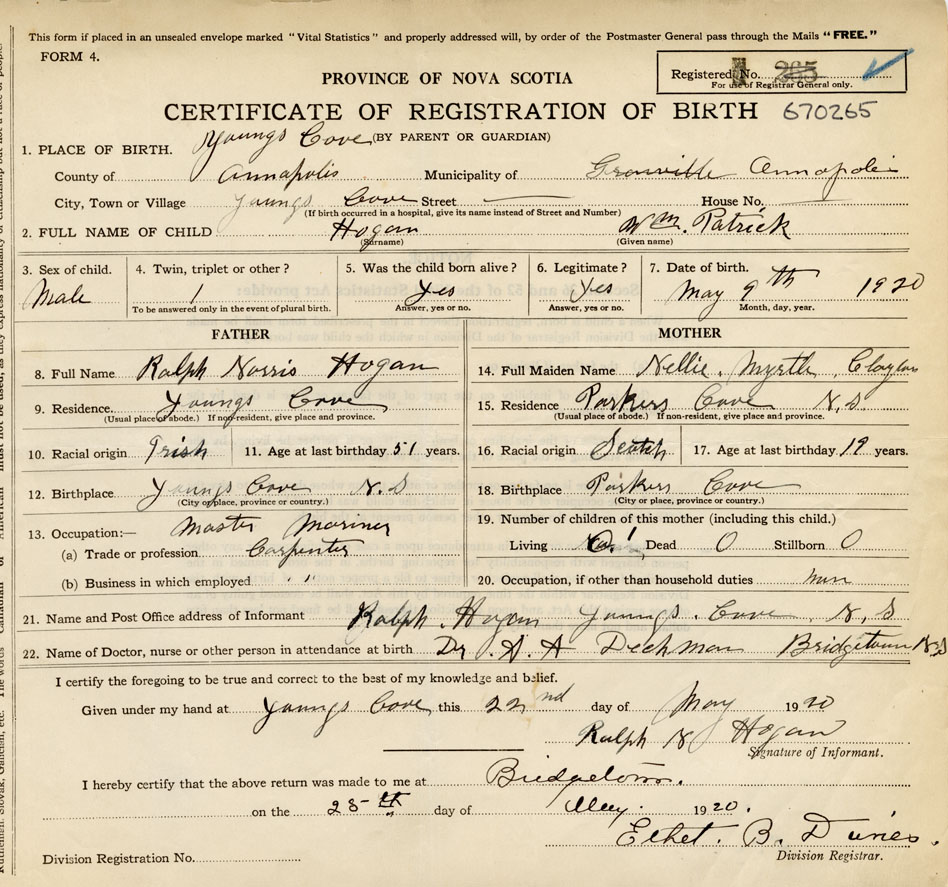 This form if placed in an unsealed envelope marked "Vital Statistics" and properly addressed will, by order of the Postmaster General pass through the Mails "FREE."
FORM 4.
Registered No. 265
For use of Registrar General only.
PROVINCE OF NOVA SCOTIA
CERTIFICATE OF REGISTRATION OF BIRTH 670265
Youngs Cove (BY PARENT OR GUARDIAN)
1. PLACE OF BIRTH.
County of Annapolis Municipality of Granville Annapolis
City, Town or Village Youngs Cove Street — House No.
(If birth occurred in a hospital, give its name instead of Street and Number)
2. FULL NAME OF CHILD Hogan Wm. Patrick
(Surname) (Given name)
3. Sex of child. 4. Twin, triplet or other? 5. Was the child born alive? 6. Legitimate? 7. Date of birth.
Male 1 Yes Yes May 9th 1920
To be answered only in the event of plural birth. Answer, yes or no. Answer, yes or no. Month, day, year.
FATHER
8. Full Name Ralph Norris Hogan
9. Residence Youngs Cove
(Usual place of abode.) If non-resident, give place and province.
10. Racial origin Irish 11. Age at last birthday 51 years.
12. Birthplace Youngs Cove N.S
(City or place, province or country.)
13. Occupation:— Master Mariner
(a) Trade or profession Carpenter
(b) Business in which employed " "
MOTHER
14. Full Maiden Name Nellie Myrtle Clayton
15. Residence Parkers Cove N.S
(Usual place of abode.) If non-resident, give place and province.
16. Racial origin Scotch 17. Age at last birthday 19 years.
18. Birthplace Parkers Cove
(City or place, province or country.)
19. Number of children of this mother (including this child.)
Living 1 Dead 0 Stillborn 0
20. Occupation, if other than household duties
21. Name and Post Office address of Informant Ralph Hogan Youngs Cove N.S
22. Name of Doctor, nurse or other person in attendance at birth Dr A. A Dechman Bridgetown N.S
I certify the foregoing to be true and correct to the best of my knowledge and belief.
Given under my hand at Youngs Cove this 22nd day of May 1920
Ralph N Hogan
Signature of Informant.
I hereby certify that the above return was made to me at Bridgetown.
on the 25th day of May 1920.
Ethel B.
Division Registration No. Division Registrar.